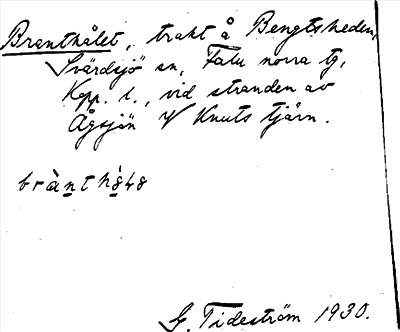 Branthålet, trakt å Bengtsheden,
Svärdsjö sn, Falu norra tg,
Kpp. l., vid stranden av
Ågsjön V Knuts tjärn.
G. Tideström 1930.